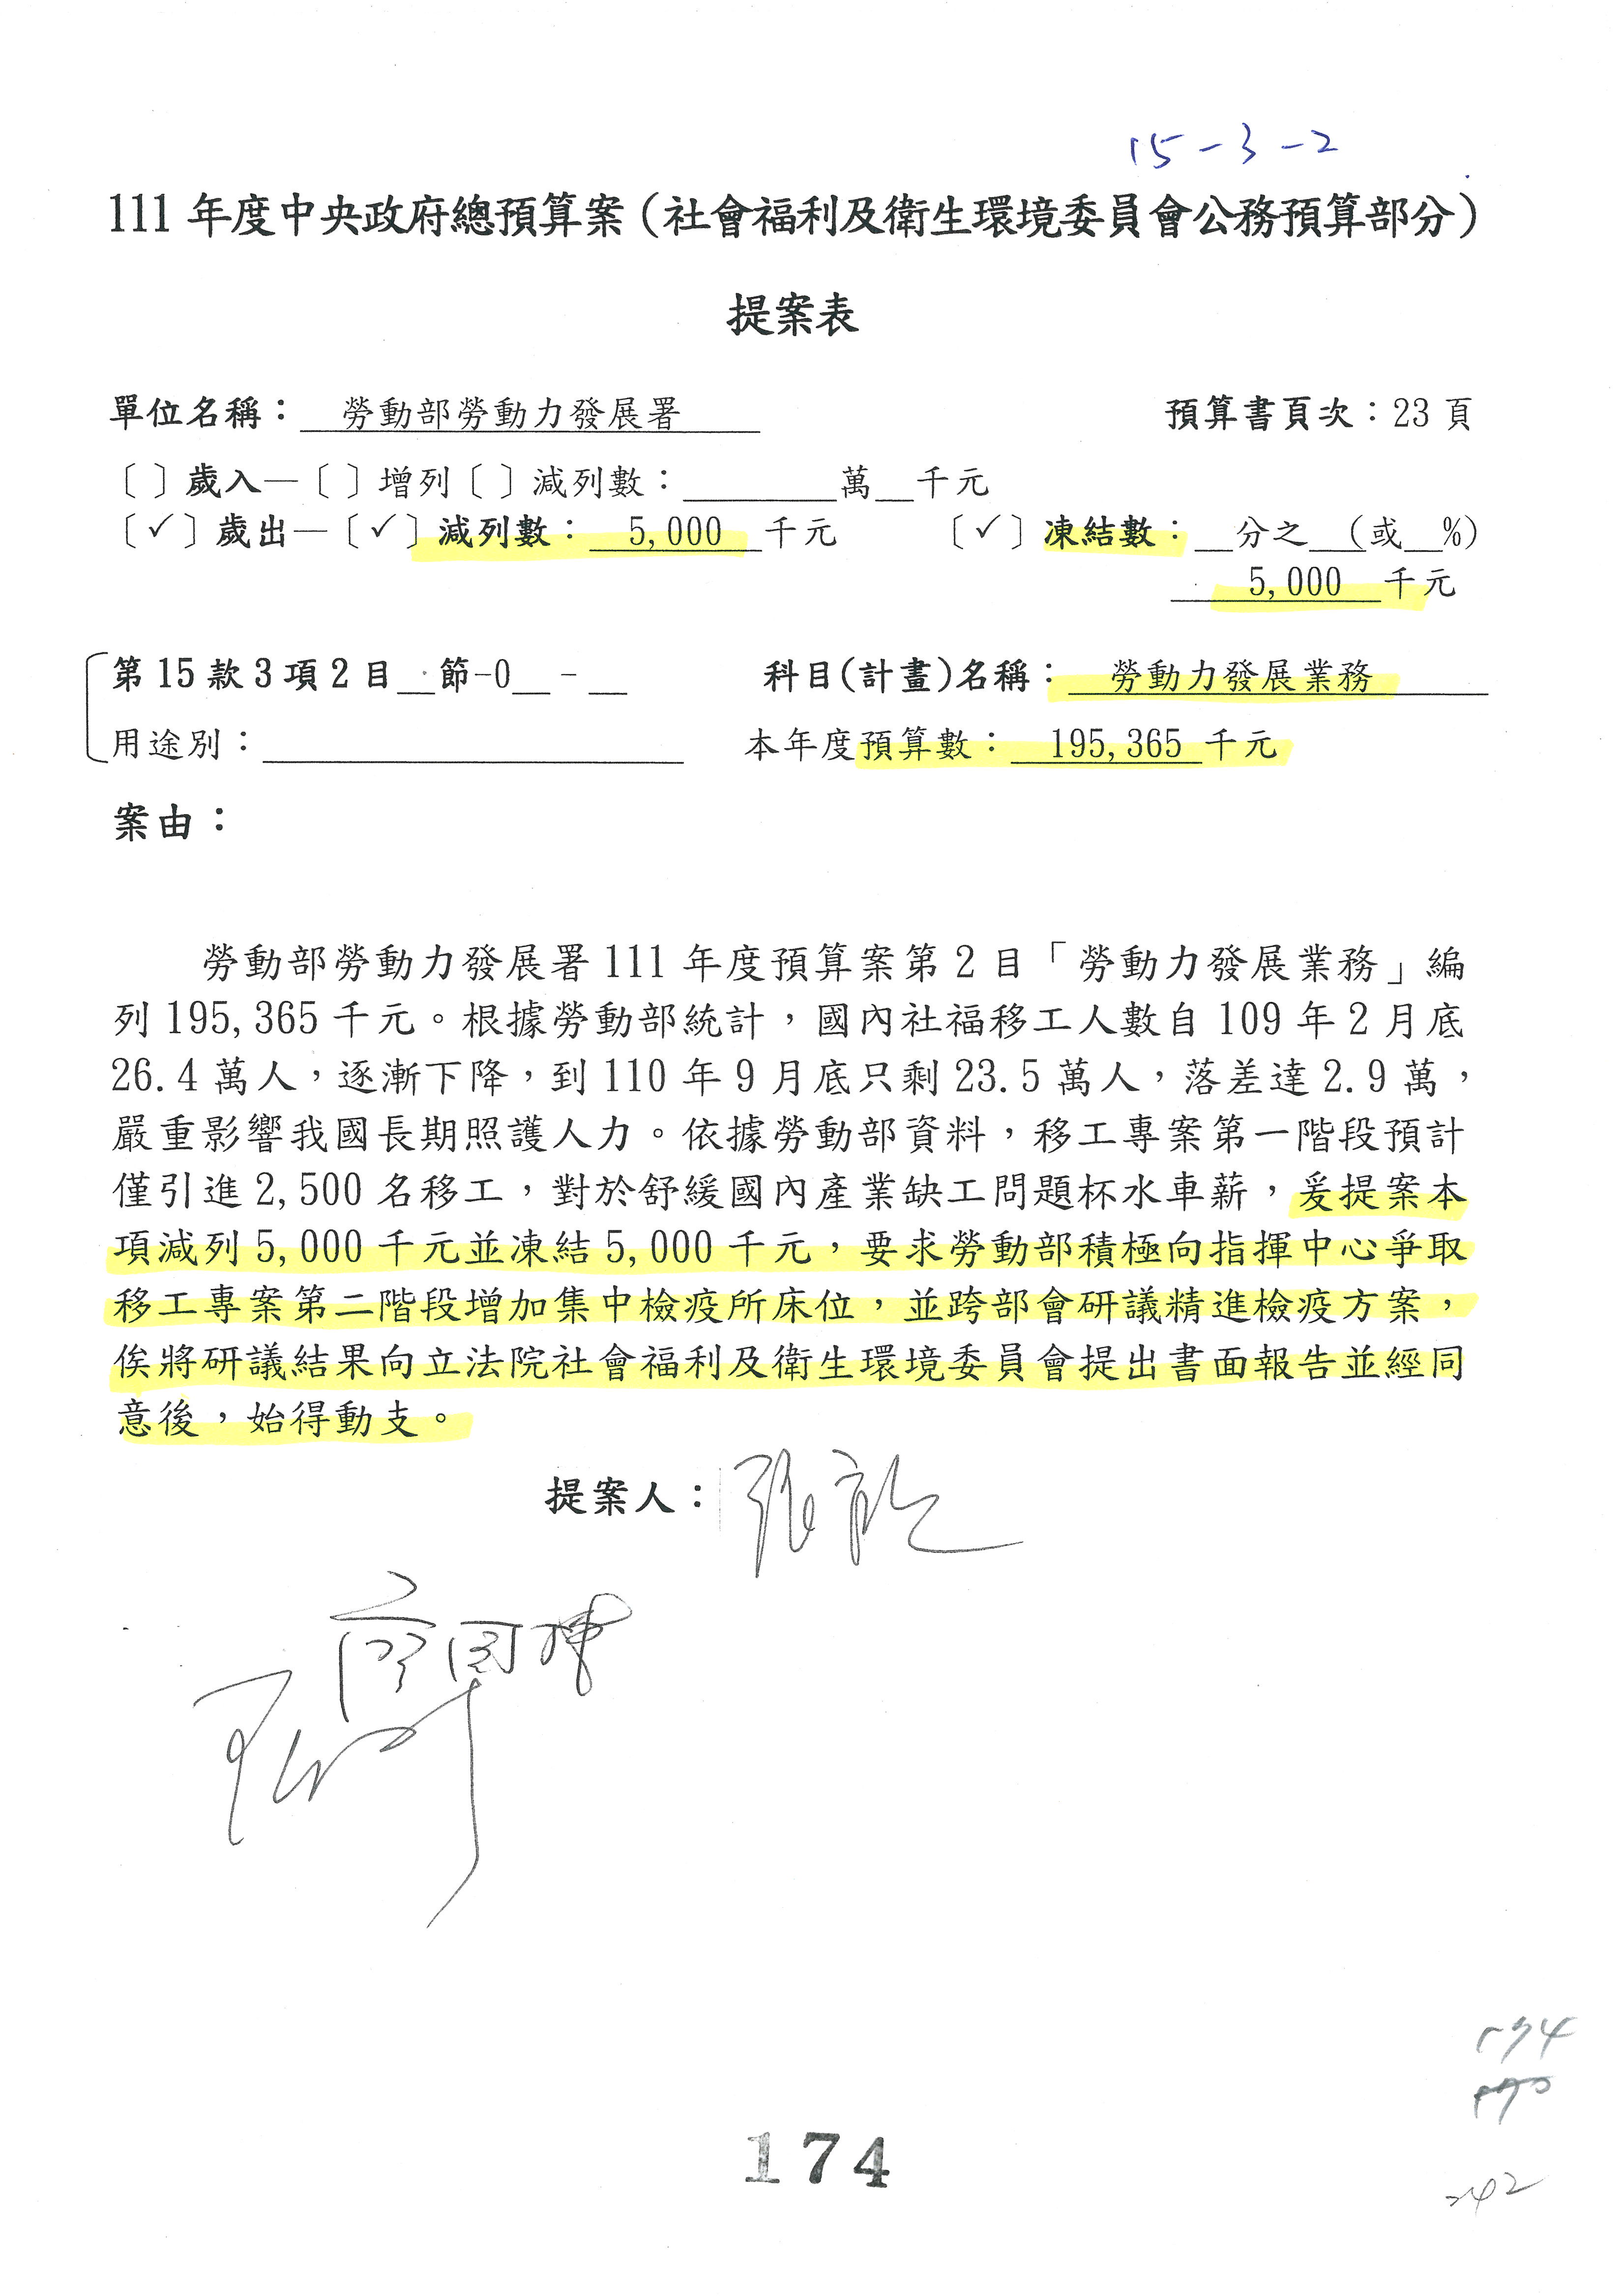 15-3-2
111 年度中央政府總預算案（社會福利及衛生環境委員會公務預算部分）
提案表
單位名稱： 勞動部勞動力發展署 預算書頁次：23 頁
〔 〕歲入—〔 〕增列〔 〕減列數：________萬__千元
〔✓〕歲出—〔✓〕減列數： 5,000 千元 〔✓〕凍結數：__分之__（或__%）
5,000 千元
第 15 款 3 項 2 目__節-0__ - __ 科目(計畫)名稱： 勞動力發展業務
用途別：____________ 本年度預算數： 195,365 千元
案由：
勞動部勞動力發展署 111 年度預算案第 2 目「勞動力發展業務」編
列 195,365 千元。根據勞動部統計，國內社福移工人數自 109 年 2 月底
26.4 萬人，逐漸下降，到 110 年 9 月底只剩 23.5 萬人，落差達 2.9 萬，
嚴重影響我國長期照護人力。依據勞動部資料，移工專案第一階段預計
僅引進 2,500 名移工，對於舒緩國內產業缺工問題杯水車薪，爰提案本
項減列 5,000 千元並凍結 5,000 千元，要求勞動部積極向指揮中心爭取
移工專案第二階段增加集中檢疫所床位，並跨部會研議精進檢疫方案，
俟將研議結果向立法院社會福利及衛生環境委員會提出書面報告並經同
意後，始得動支。
提案人：
廖國棟
174
242